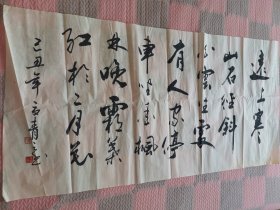 遠上寒
山石径斜
白雲生處
有人家停
車坐爱楓
林晚霜葉
红於二月花
己丑年